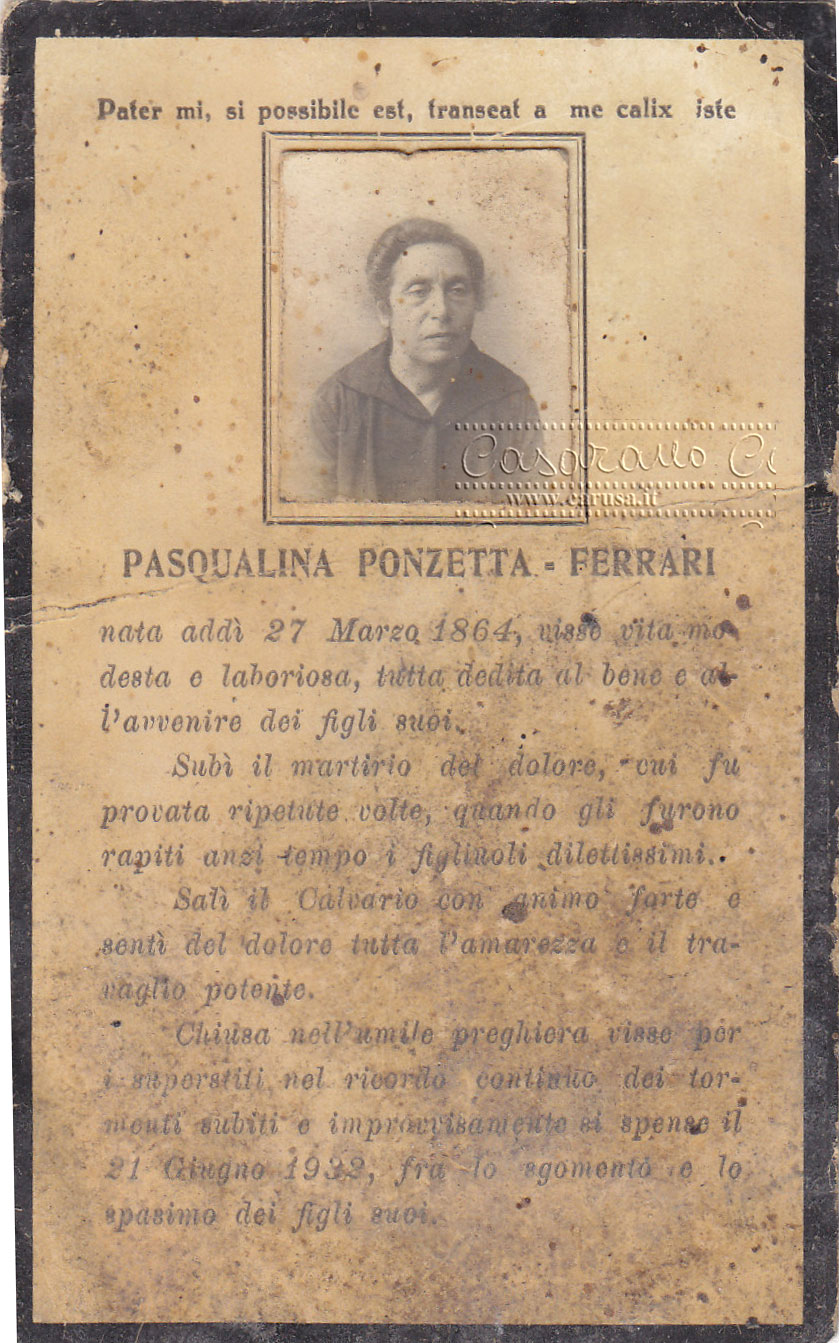 Pater mi, si possibile est, transeat a me calix iste
Casarano Ci
www.carusa.it
PASQUALINA PONZETTA - FERRARI
nata addì 27 Marzo 1864, visse vita mo-
desta e laboriosa, tutta dedita al bene e al-
l'avvenire dei figli suoi.
Subì il martirio del dolore, cui fu
provata ripetute volte, quando gli furono
rapiti anzi tempo i figliuoli dilettissimi.
Salì il Calvario con animo forte e
sentì del dolore tutta l'amarezza e il tra-
vaglio potente.
Chiusa nell'umile preghiera visse per
i superstiti nel ricordo continuo dei tor-
menti subiti e improvvisamente si spense il
21 Giugno 1932, fra lo sgomento e lo
spasimo dei figli suoi.